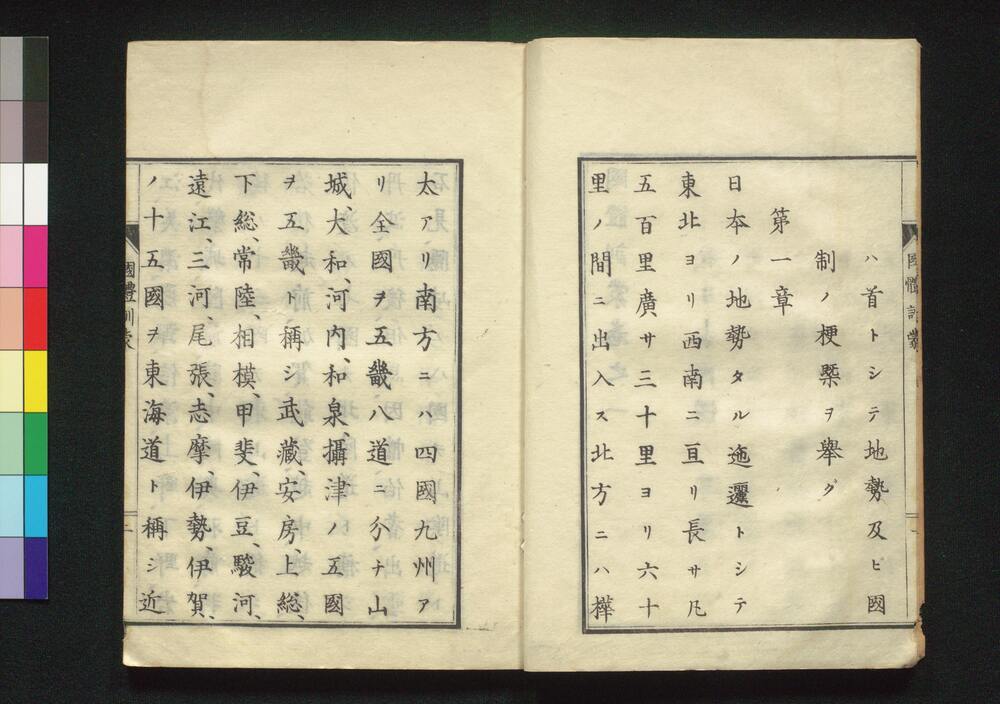 ハ首トシテ地勢及ビ國
制ノ梗槩ヲ擧グ
第一章
日本ノ地勢タル迤邐トシテ
東北ヨリ西南ニ亘リ長サ凡
五百里廣サ三十里ヨリ六十
里ノ間ニ出入ス北方ニハ樺
太アリ南方ニハ四國九州ア
リ全國ヲ五畿八道ニ分ナ山
城、大和、河內、和泉、攝津ノ五國
ヲ五畿ト稱シ武藏、安房、上総、
下総、常陸、相模、甲斐、伊豆、駿河、
遠江、三河、尾張、志摩、伊勢、伊賀、
ノ十五國ヲ東海道ト稱シ近
國體訓蒙